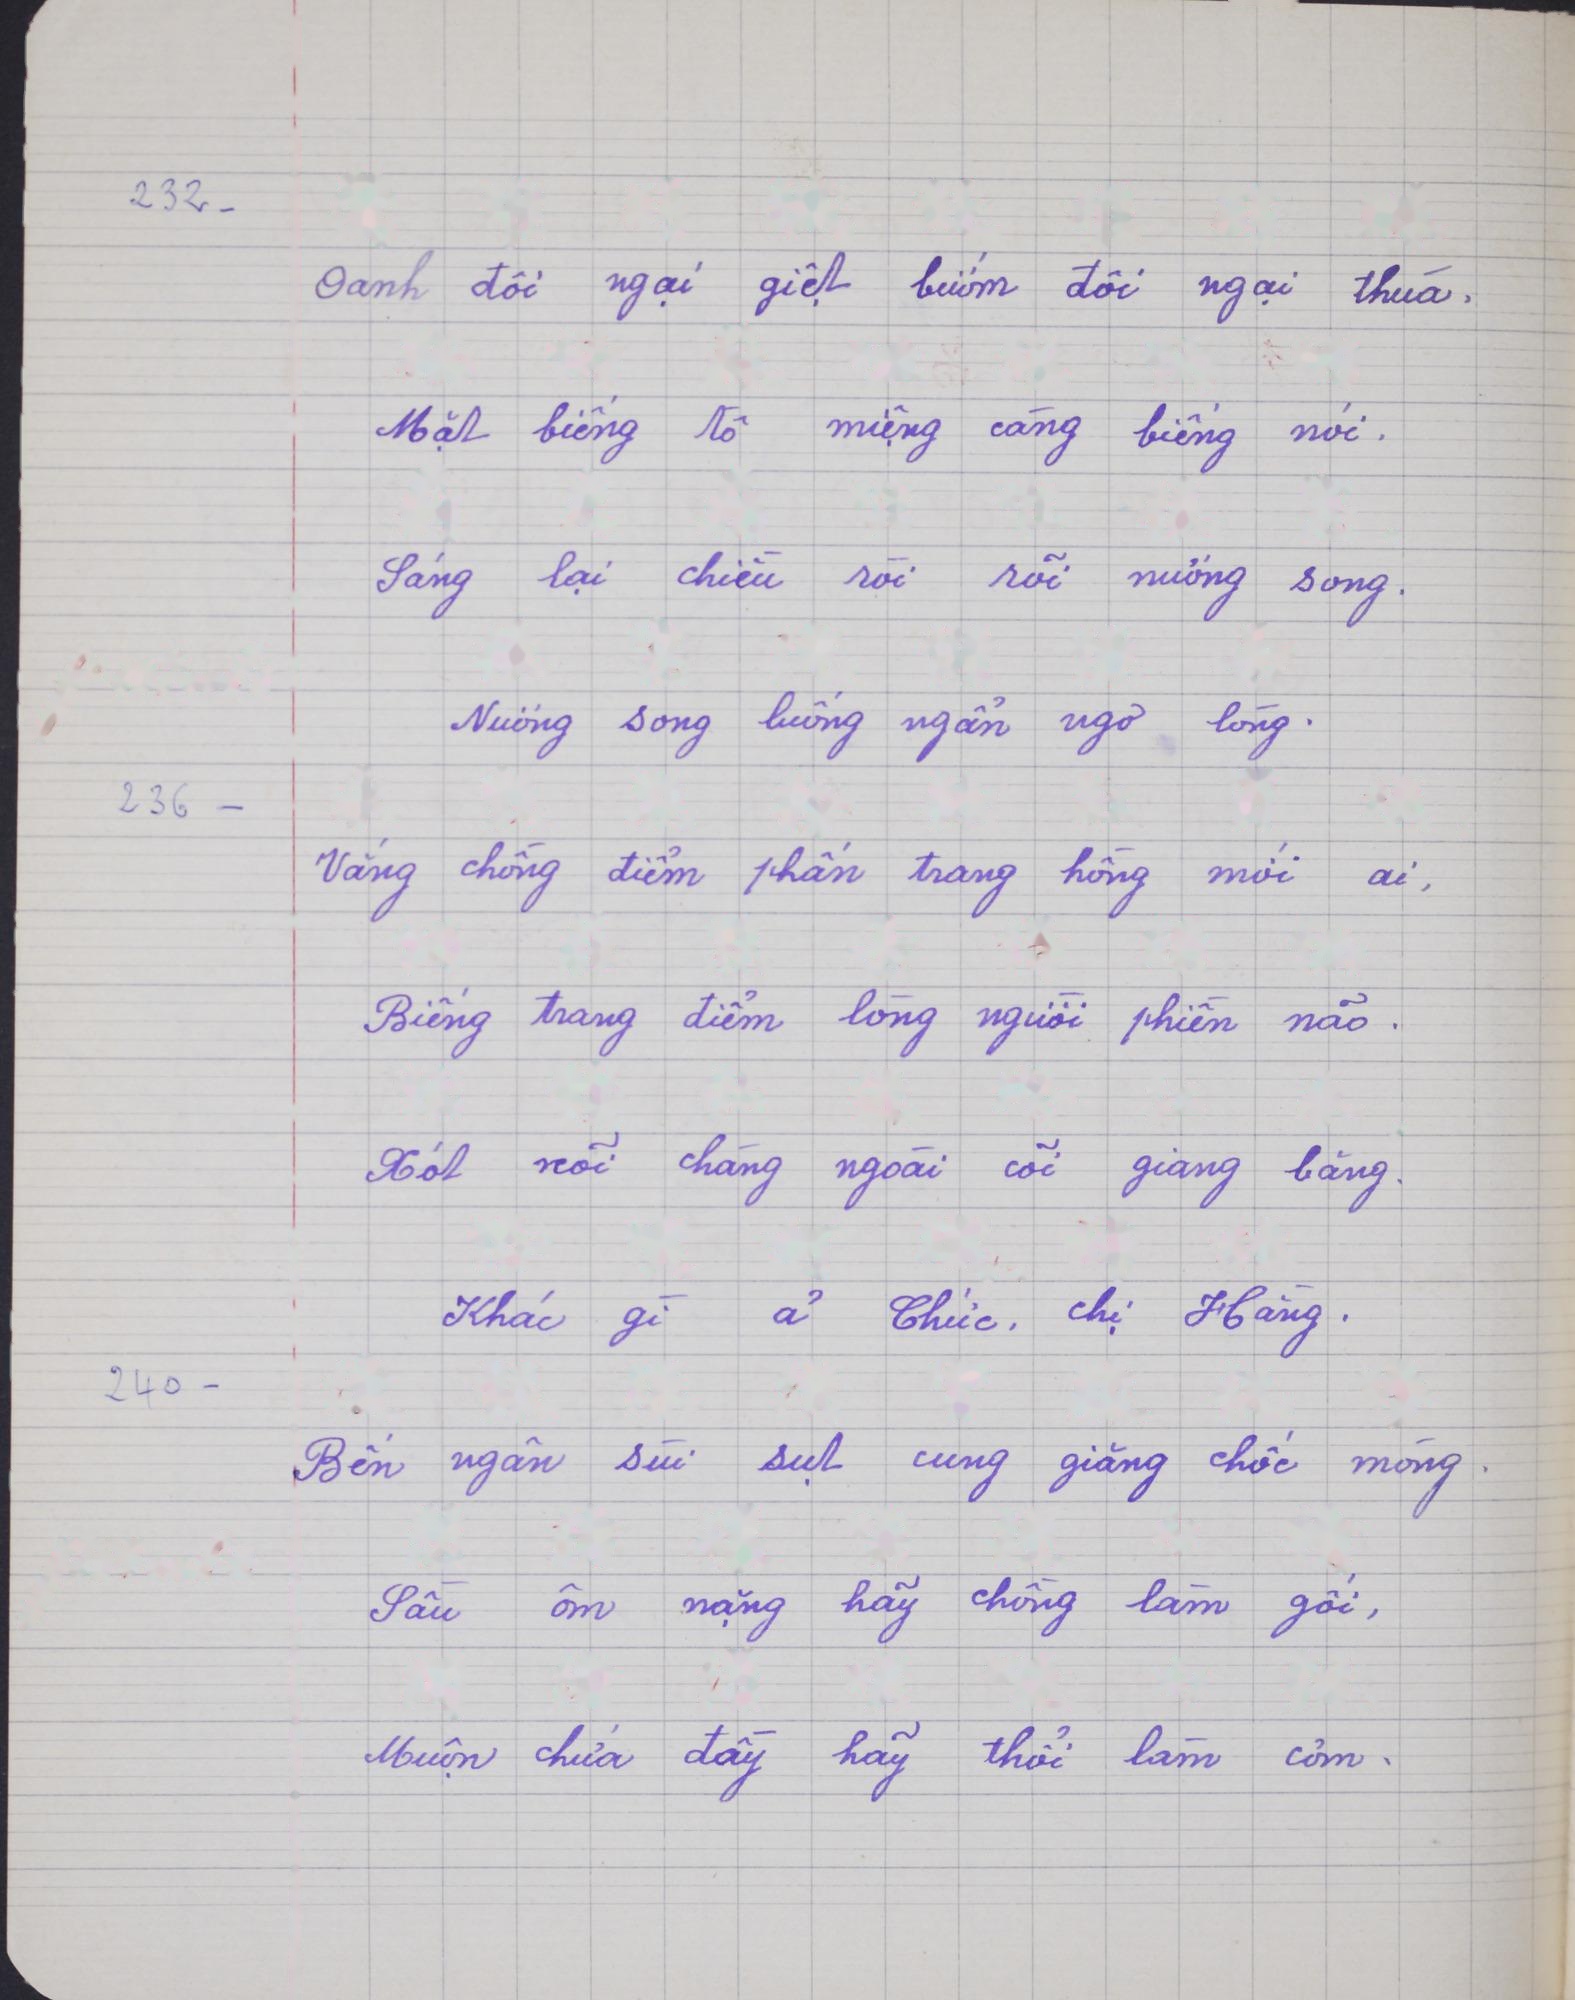 232-
Oanh đôi ngại giệt bướm đôi ngại thùa.
Mặt biếng tô miệng càng biếng nói.
Sáng lại chiều rồi rỗi nương song.
Nương song luống ngẩn ngơ lòng.
236 -
Vắng chồng điểm phấn trang hồng mới ai,
Biếng trang điểm lòng người phiền não.
Xót nỗi chàng ngoài cõi giang băng.
Khác gì ả Chức, chị Hằng.
240 -
Bến ngân sùi sụt cung giăng chốc mòng.
Sầu ôm nặng hãy chồng làm gối,
Muộn chứa đầy hãy thổi làm cơm.